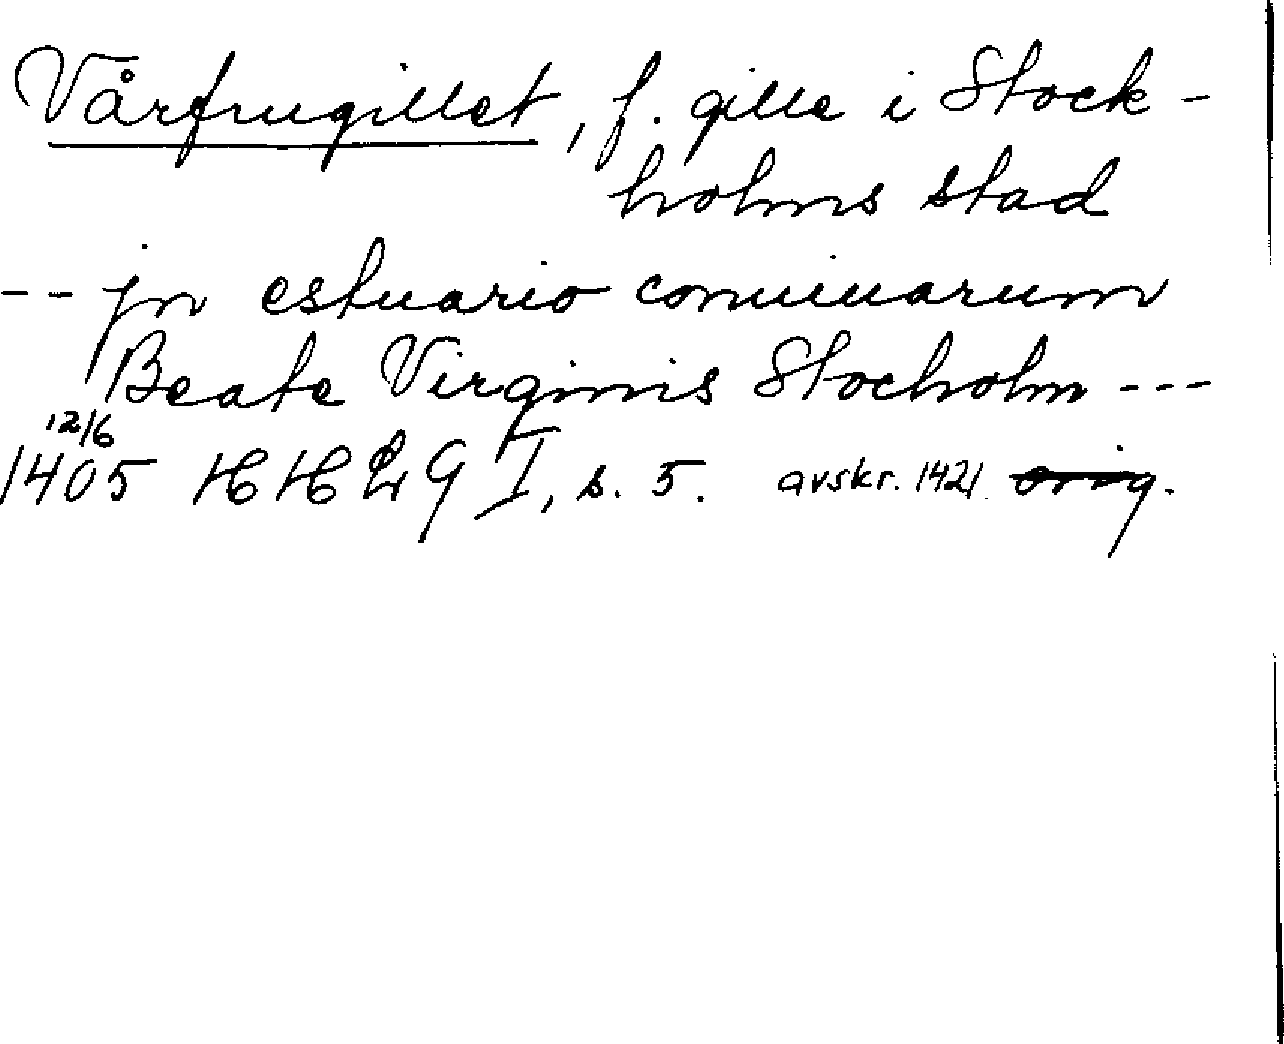 Vårfrugillet, f. gille i Stock-
holms stad
-- jn estuario conuiuarum
Beate Virginis Stocholm ---
12/6
1405 HH I, s. 5. avskr. 1421 orig.